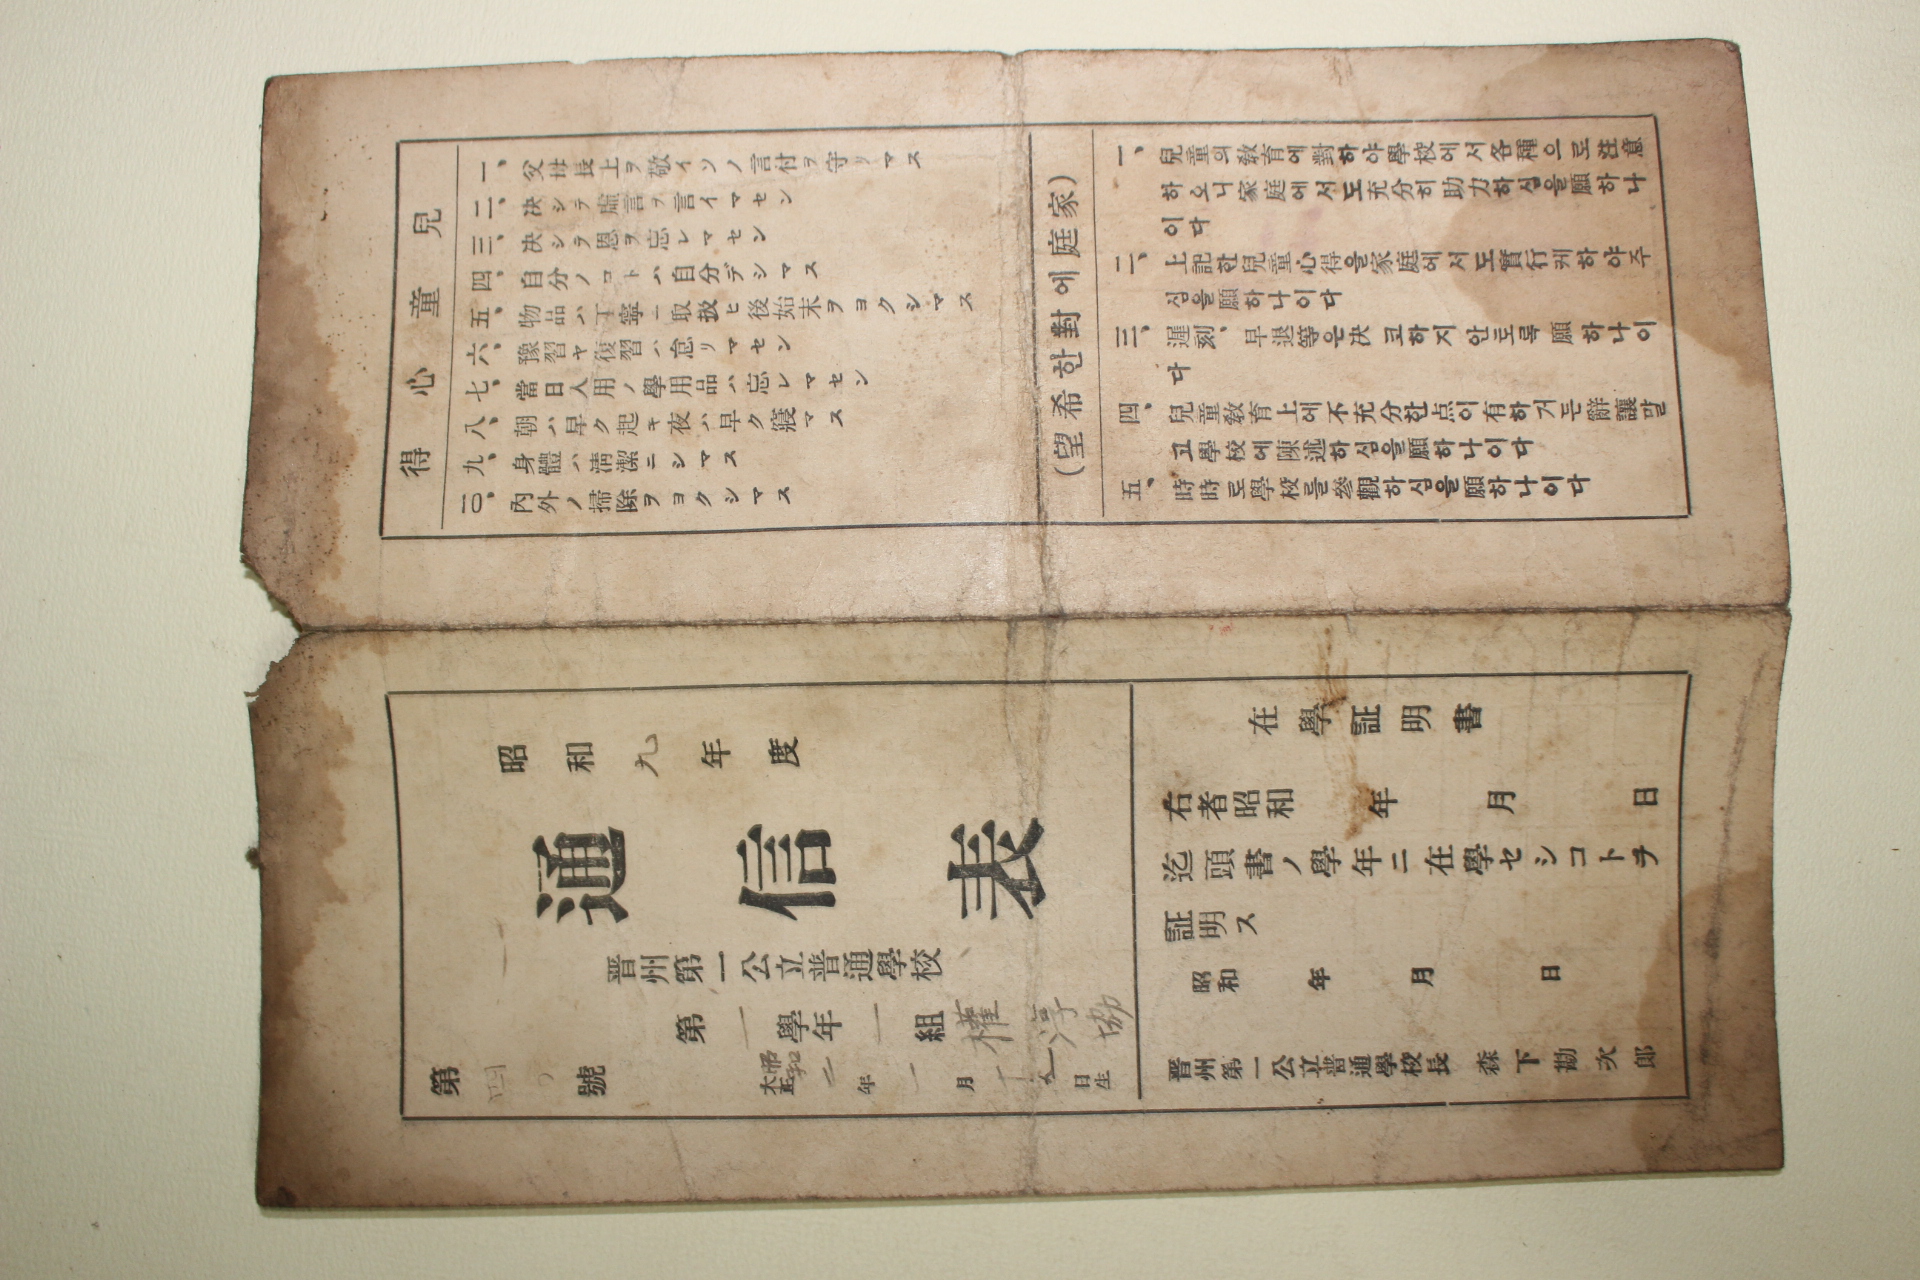 昭和九年度
通信表
晋州第一公立普通學校
第一學年一組 權淳協
大正昭和二年一月十五日生
第四號
在學証明書
右者昭和 年 月 日
迄頭書ノ學年ニ在學セシコトヲ
証明ス
昭和 年 月 日
晋州第一公立普通學校長 森下勘次郎
兒童心得
一、父母長上ヲ敬イソノ言付ヲ守リマス
二、決シテ虛言ヲ言イマセン
三、決シテ恩ヲ忘レマセン
四、自分ノコトハ自分デシマス
五、物品ハ丁寧ニ取扱ヒ後始末ヲヨクシマス
六、豫習ヤ復習ハ怠リマセン
七、當日入用ノ學用品ハ忘レマセン
八、朝ハ早ク起キ夜ハ早ク寢マス
九、身體ハ淸潔ニシマス
一〇、內外ノ掃除ヲヨクシマス
(家庭에對한希望)
一、兒童의敎育에對하야學校에서各種으로注意
하오니家庭에서도充分히助力하심을願하나
이다
二、上記한兒童心得을家庭에서도實行케하야주
심을願하나이다
三、遲刻、早退等은決코하지안토록願하나이
다
四、兒童敎育上에不充分한点이有하거든辭讓말
고學校에陳述하심을願하나이다
五、時時로學校를參觀하심을願하나이다